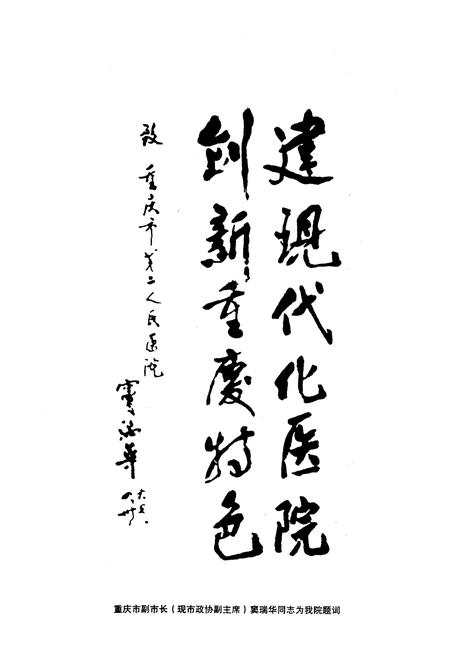 建现代化医院
创新重庆特色
致 重庆市第二人民医院
窦瑞华
重庆市副市长（现市政协副主席）窦瑞华同志为我院题词